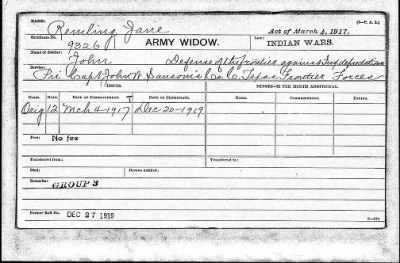 (3—C. A. S.)
NAME: Remling Jane
Certificate No. 9326 ARMY WIDOW. Law: Act of March 4, 1917. INDIAN WARS.
Name of Soldier: John
Service: Defense of the frontier against Ind depredations
Pri Capt John W Sansom's Co C. Texas Frontier Forces
ISSUES. MINORS—$2 PER MONTH ADDITIONAL.
CLASS. RATE. DATE OF COMMENCEMENT. DATE OF CERTIFICATE.
Orig 12 Mch 4-1917 Dec 20-1919
Fee: No fee
Transferred from: Transferred to:
Died: Bureau notified:
Remarks: GROUP 3
Former Roll No. DEC 27 1919